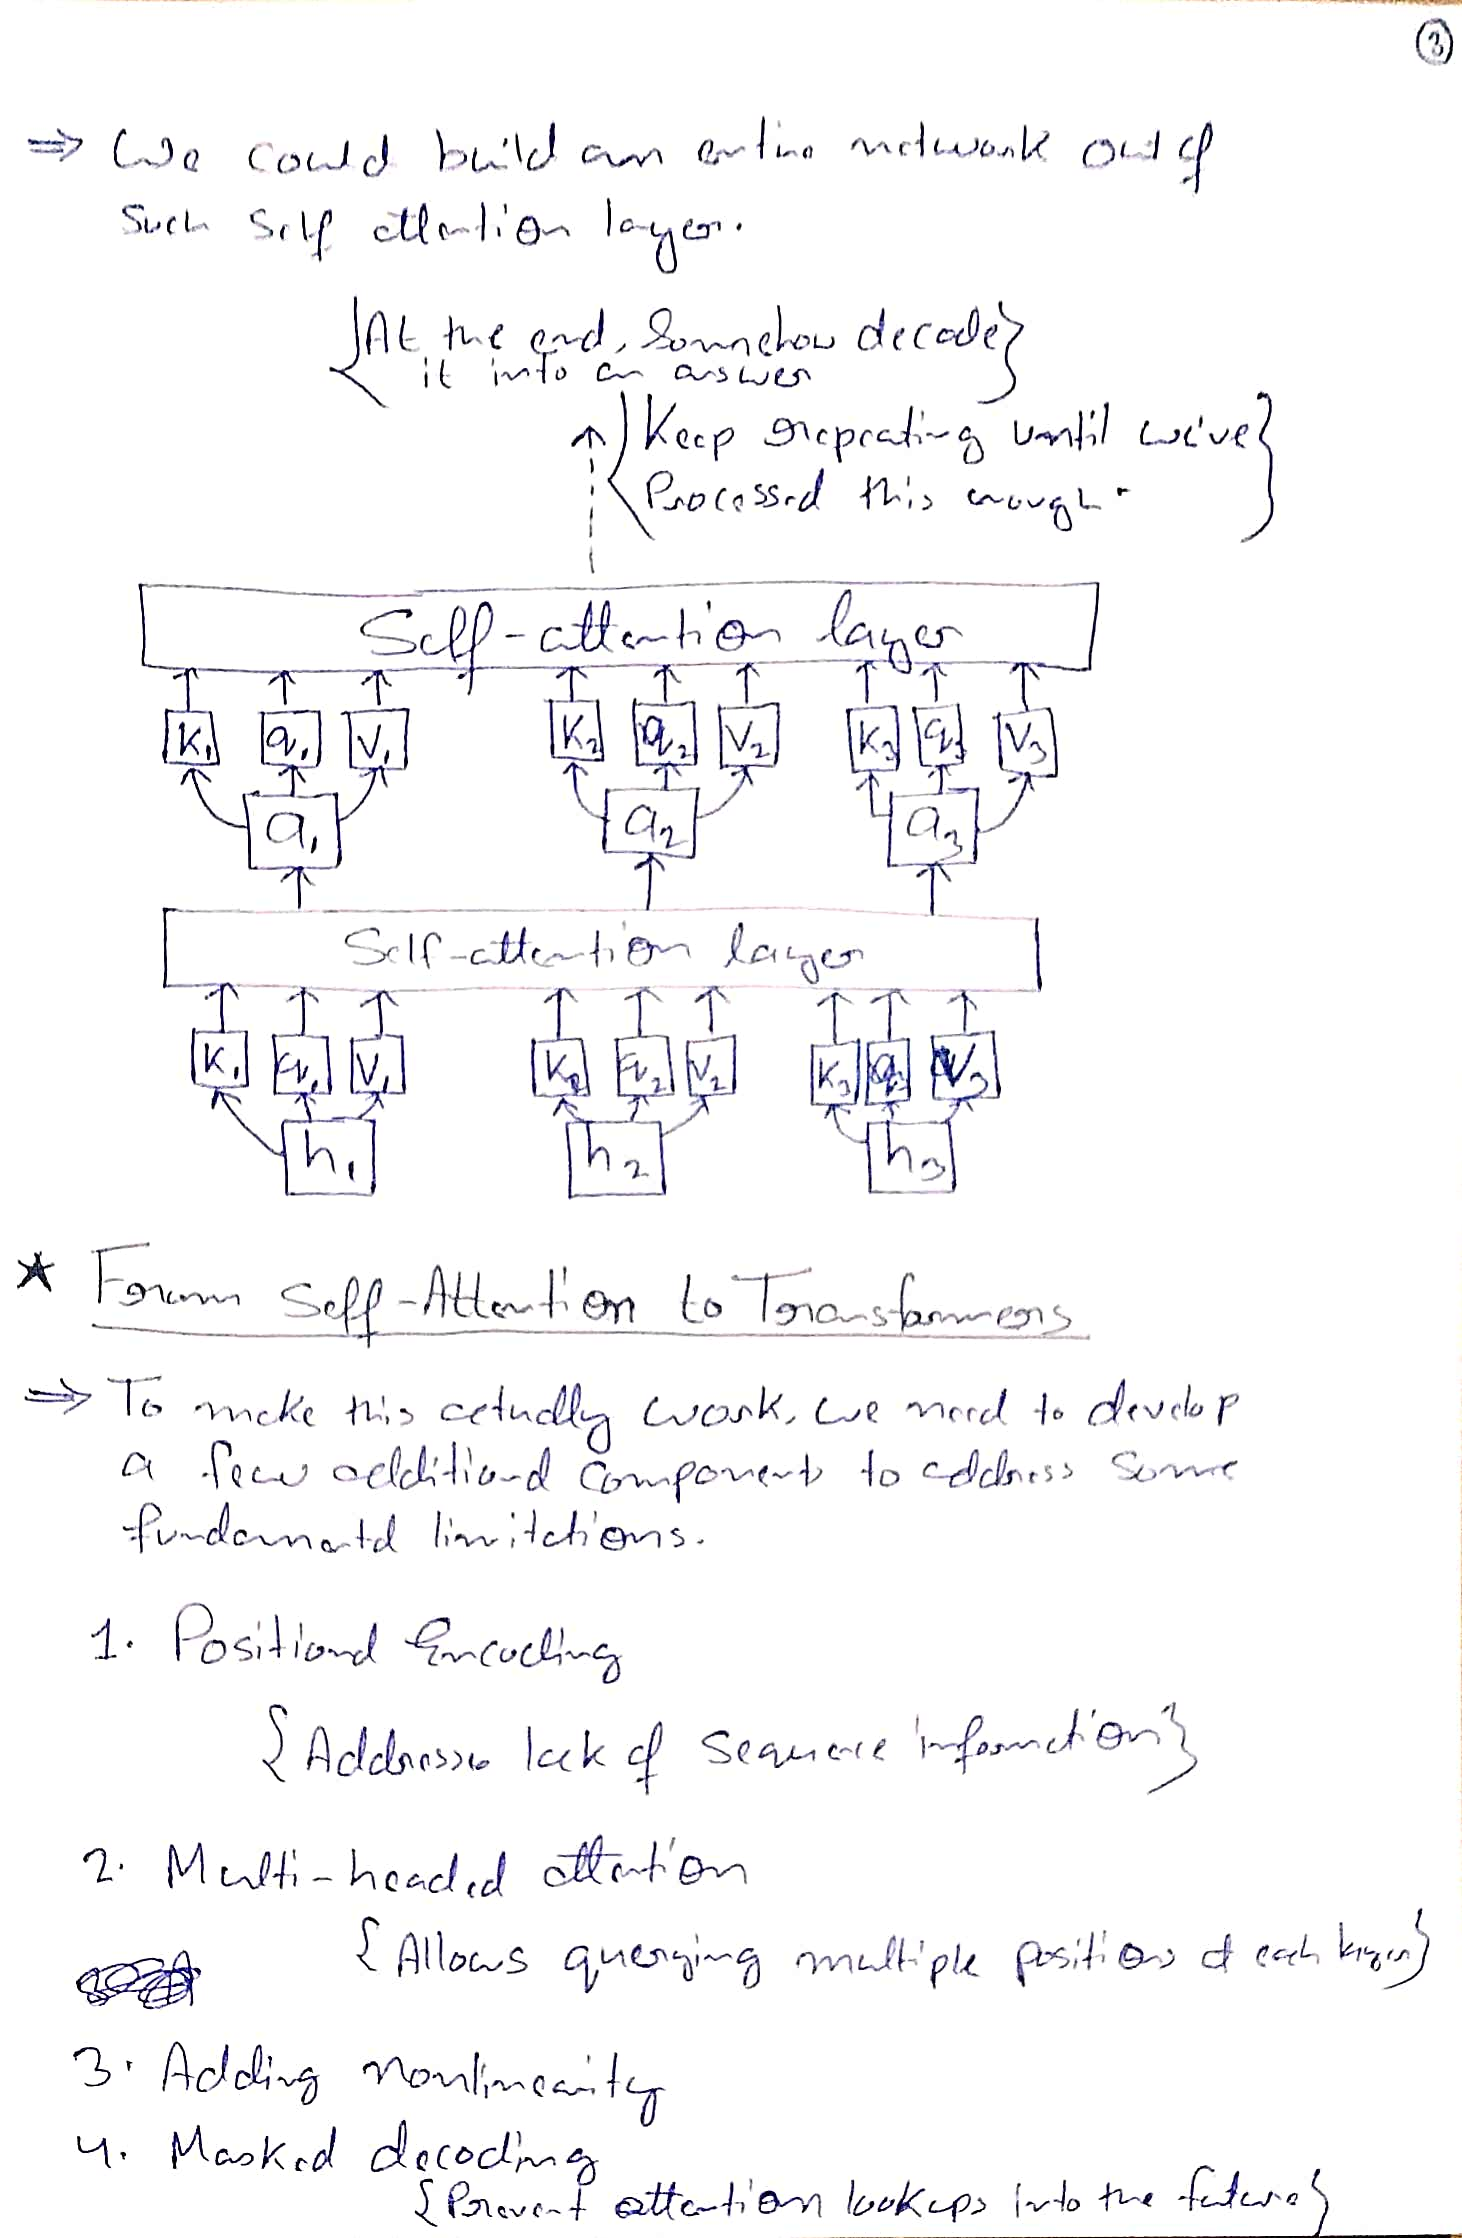 3
⇒ We could build an entire network out of
such self attention layer.
{At the end, Somehow decode}
it into an answer
{Keep repeating until we've}
Processed this enough.
Self-attention layer
K₁ q₁ V₁ K₂ q₂ V₂ K₃ q₃ V₃
a₁ a₂ a₃
Self-attention layer
K₁ q₁ V₁ K₂ q₂ V₂ K₃ q₃ V₃
h₁ h₂ h₃
★ From Self-Attention to Transformers
⇒ To make this actually work, we need to develop
a few additional components to address some
fundamental limitations.
1. Positional Encoding
{Addresses lack of sequence information}
2. Multi-headed attention
{Allows querying multiple positions at each layer}
3. Adding nonlinearity
4. Masked decoding
{Prevent attention lookups into the future}